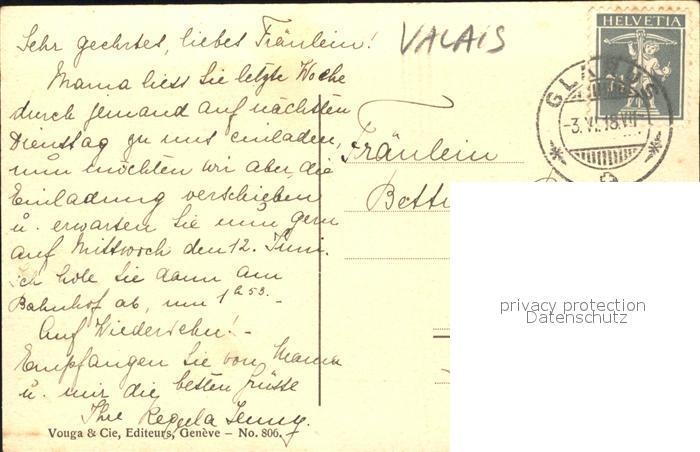 Sehr geehrtes, liebes Fräulein!
VALAIS
HELVETIA
GLARUS
-3.VI.18.VII-
Mama liess Sie letzte Woche
durch jemand auf nächsten
Dienstag zu uns einladen,
nun möchten wir aber die
Einladung verschieben
u. erwarten Sie nun gern
auf Mittwoch den 12. Juni.
Ich hole Sie dann am
Bahnhof ab, um 1h53.-
Auf Wiedersehn!-
Empfangen Sie von Mama
u. mir die besten Grüsse
Ihre Regula Jenny.
Fräulein
Betti
privacy protection
Datenschutz
Vouga & Cie, Editeurs, Genève - No. 806.